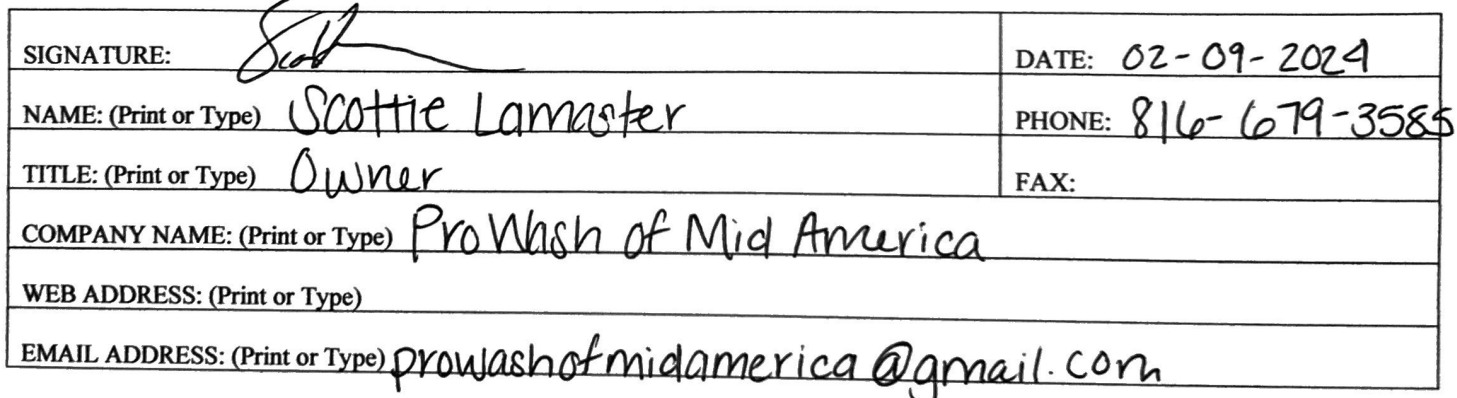 SIGNATURE: Scott DATE: 02-09-2024
NAME: (Print or Type) Scottie Lamaster PHONE: 816-679-3585
TITLE: (Print or Type) Owner FAX:
COMPANY NAME: (Print or Type) ProWash of Mid America
WEB ADDRESS: (Print or Type)
EMAIL ADDRESS: (Print or Type) prowashofmidamerica@gmail.com